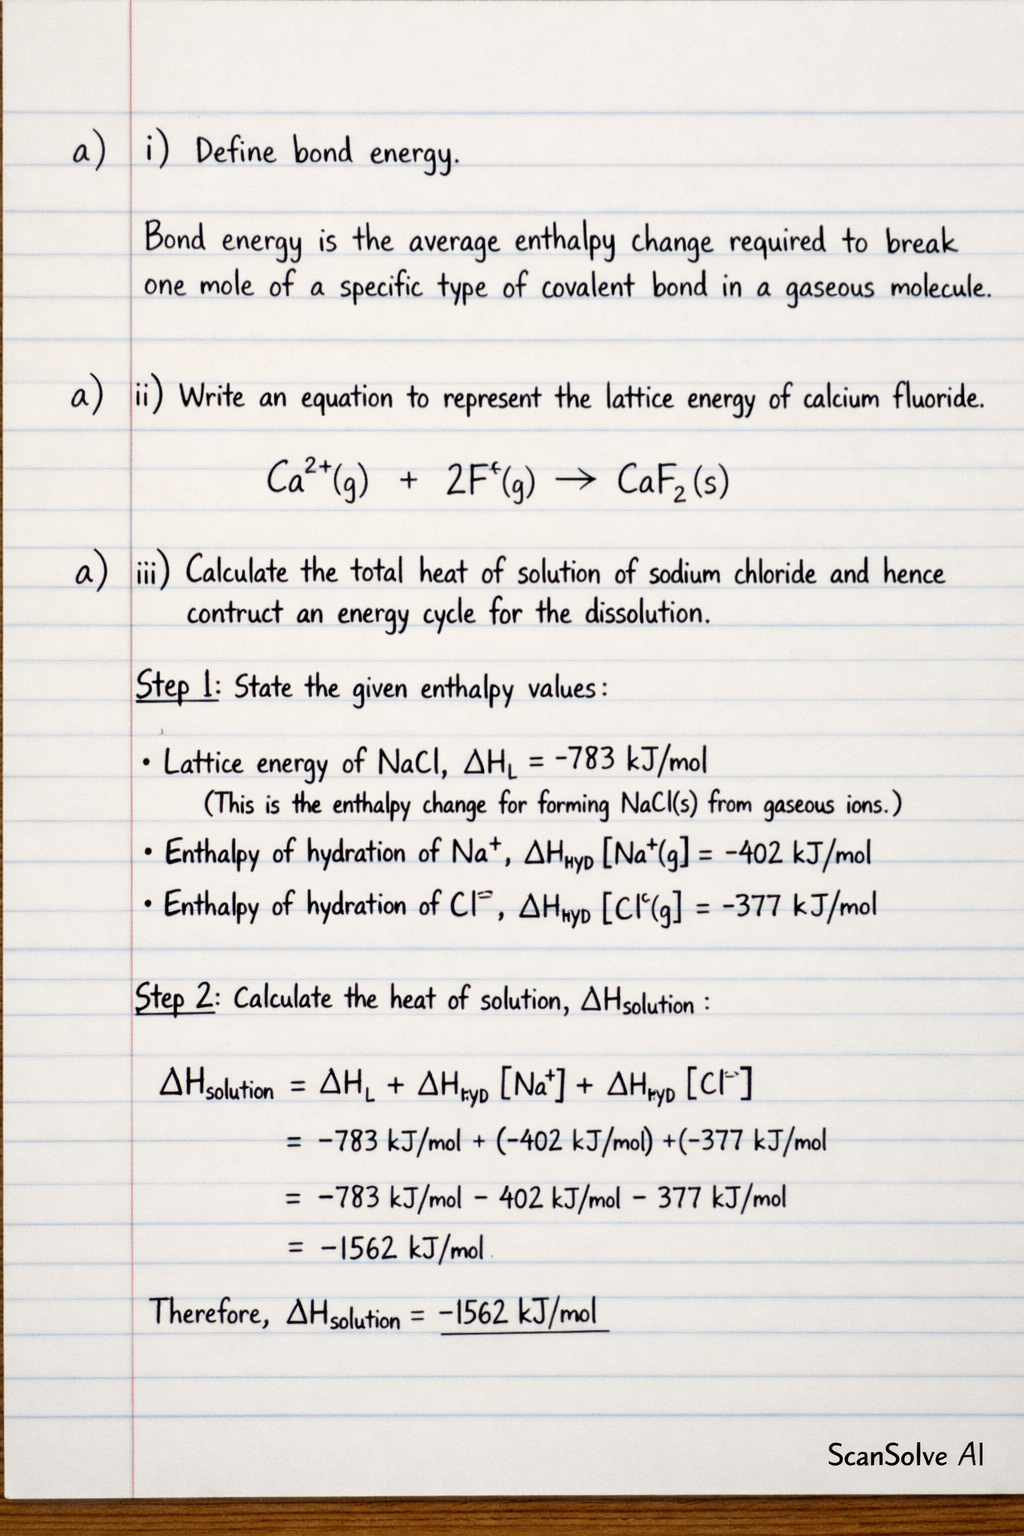 a) i) Define bond energy.
Bond energy is the average enthalpy change required to break
one mole of a specific type of covalent bond in a gaseous molecule.
a) ii) Write an equation to represent the lattice energy of calcium fluoride.
Ca²⁺(g) + 2F⁻(g) → CaF₂(s)
a) iii) Calculate the total heat of solution of sodium chloride and hence
contruct an energy cycle for the dissolution.
Step 1: State the given enthalpy values:
• Lattice energy of NaCl, ΔH_L = -783 kJ/mol
(This is the enthalpy change for forming NaCl(s) from gaseous ions.)
• Enthalpy of hydration of Na⁺, ΔH_HYD [Na⁺(g] = -402 kJ/mol
• Enthalpy of hydration of Cl⁼, ΔH_HYD [Cl⁻(g] = -377 kJ/mol
Step 2: Calculate the heat of solution, ΔHsolution :
ΔHsolution = ΔH_L + ΔH_HYD [Na⁺] + ΔH_HYD [Cl⁻]
= -783 kJ/mol + (-402 kJ/mol) +(-377 kJ/mol
= -783 kJ/mol - 402 kJ/mol - 377 kJ/mol
= -1562 kJ/mol
Therefore, ΔHsolution = -1562 kJ/mol
ScanSolve AI